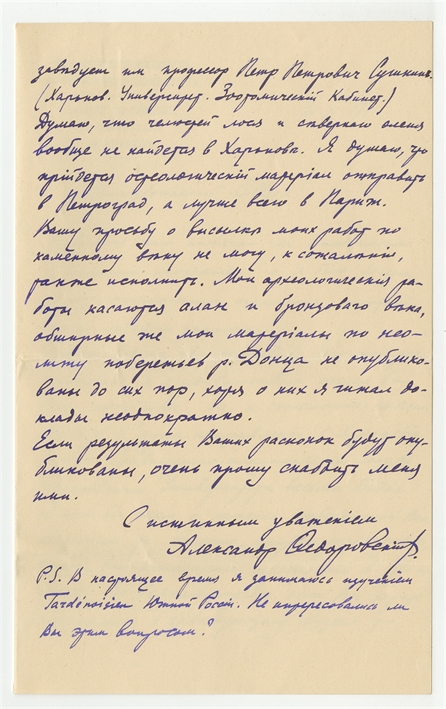 заведует им профессор Петр Петрович Сушкинъ.
(Харьков. Университ. Зоотомическій Кабинет.)
Думаю, что челюстей лося и северного оленя
вообще не найдется в Харькове. Я думаю, что
прійдется остеологическій матеріал отправить
в Петроград, а лучше всего в Париж.
Вашу просьбу о высылке моих работ по
каменному веку не могу, к сожаленію,
также исполнить. Мои археологическія ра-
боты касаются алан и бронзоваго века,
обширные же мои матеріалы по нео-
литу побережьев р. Донца не опублико-
ваны до сих пор, хотя о них я читал до-
клады неоднократно.
Если результаты Ваших раскопок будут опу-
бликованы, очень прошу снабдить меня
ими.
С истинным уваженіем
Александр Федоровскій.
P.S. В настоящее время я занимаюсь изученіем
Tardénoisien Южной Россіи. Не интересовались ли
Вы этим вопросом?